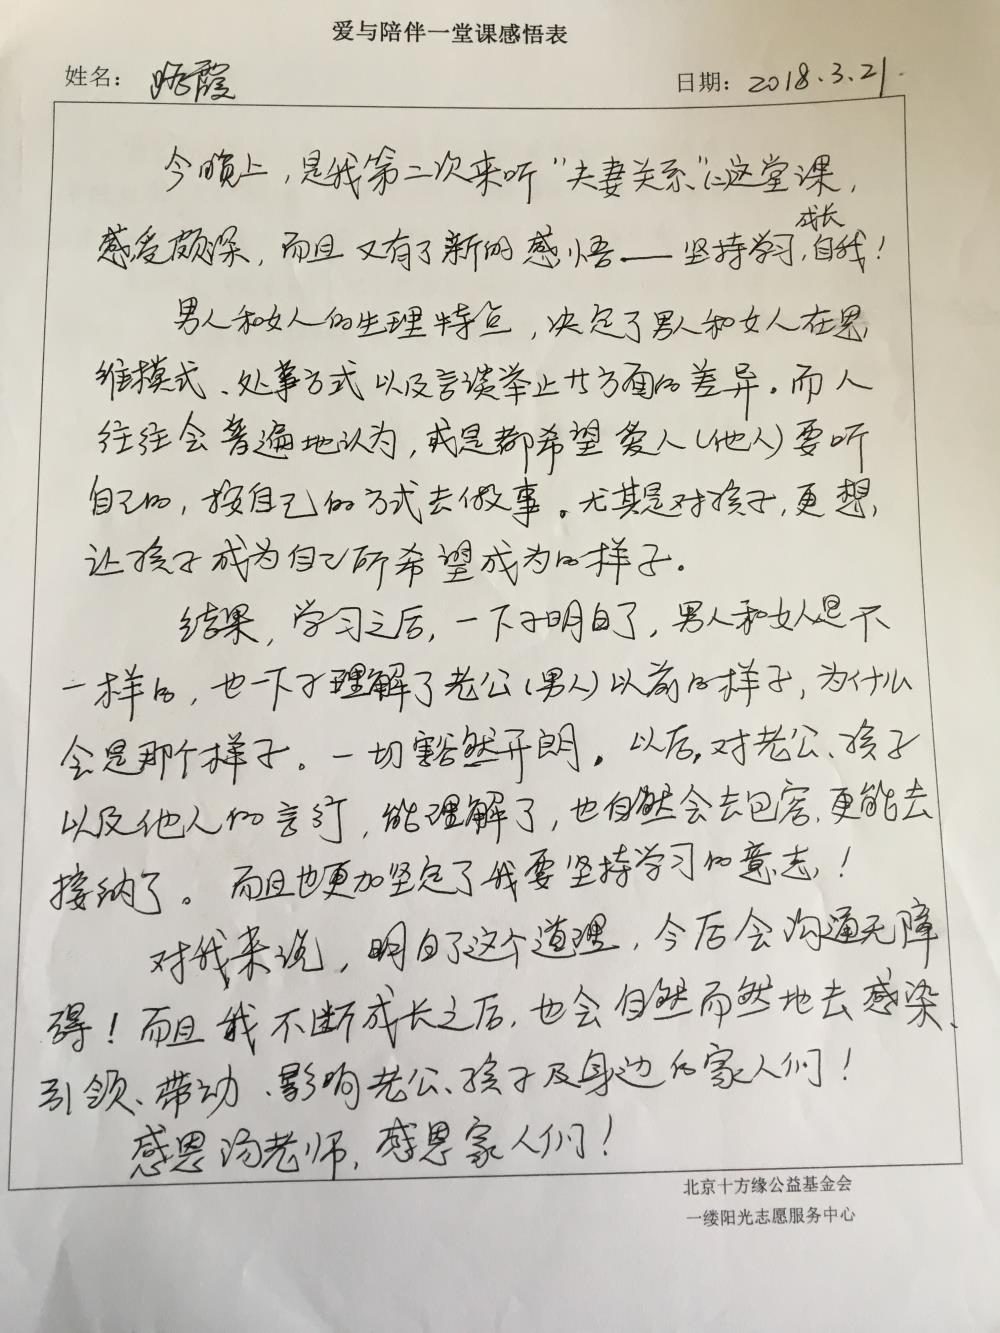 爱与陪伴一堂课感悟表
姓名: 霞 日期: 2018.3.21.
今晚上,是我第二次来听“夫妻关系”这堂课,
感受颇深,而且又有了新的感悟——坚持学习,成长自我!
男人和女人的生理特点,决定了男人和女人在思
维模式、处事方式以及言谈举止廿方面的差异。而人
往往会普遍地认为,或是都希望爱人(他人)要听
自己的,按自己的方式去做事。尤其是对孩子,更想,
让孩子成为自己所希望成为的样子。
结果,学习之后,一下子明白了,男人和女人是不
一样的,也一下子理解了老公(男人)以前的样子,为什么
会是那个样子。一切豁然开朗。以后,对老公、孩子
以及他人的言行,能理解了,也自然会去包容,更能去
接纳了。而且也更加坚定了我要坚持学习的意志!
对我来说,明白了这个道理,今后会沟通无障
碍!而且我不断成长之后,也会自然而然地去感染、
引领、带动、影响老公、孩子及身边的家人们!
感恩汤老师,感恩家人们!
北京十方缘公益基金会
一缕阳光志愿服务中心